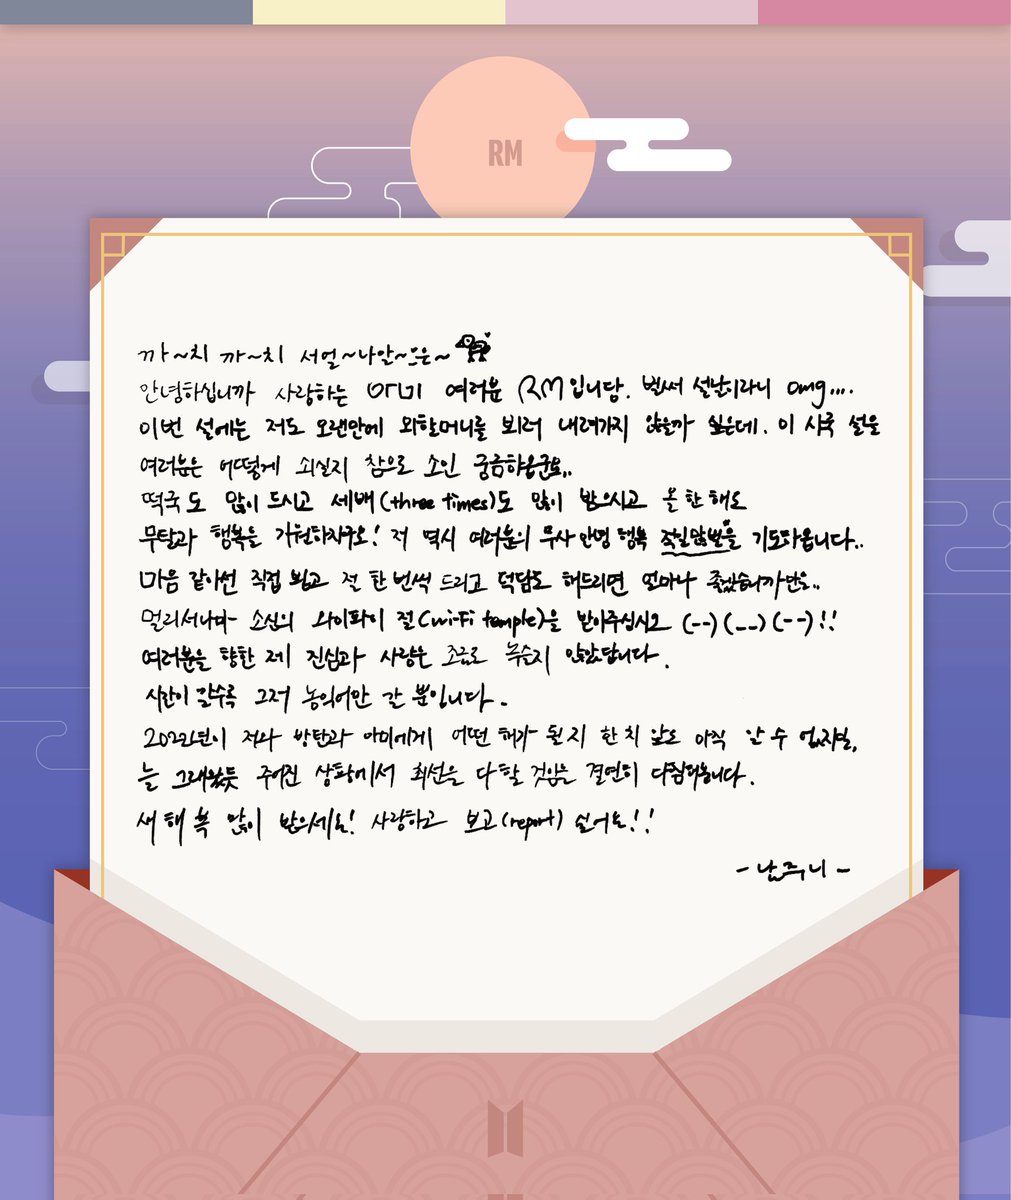 RM
까~치 까~치 서얼~나안~은~
안녕하십니까 사랑하는 아미 여러분 RM입니당. 벌써 설날이라니 omg....
이번 설에는 저도 오랜만에 외할머니를 뵈러 내려가지 않을까 싶은데. 이 시국 설을
여러분은 어떻게 쇠실지 참으로 소인 궁금하옵군요..
떡국도 많이 드시고 세배(three times)도 많이 받으시고 올 한 해도
무탈과 행복을 기원하자구요! 저 역시 여러분의 무사 안녕 행복 을 기도하옵니다..
마음 같아선 직접 뵙고 절 한 번씩 드리고 덕담도 해드리면 얼마나 좋겠습니까만은..
멀리서나마 소신의 와이파이 절(wi-fi temple)을 받아주십시오 (--)(__)(--)!!
여러분을 향한 제 진심과 사랑은 조금도 녹슬지 않았답니다.
시간이 갈수록 그저 농익어만 갈 뿐입니다.
2022년이 저와 방탄과 아미에게 어떤 해가 될지 한 치 앞도 아직 알 수 없지만,
늘 그래왔듯 주어진 상황에서 최선을 다할 것임은 결연히 다짐해봅니다.
새해 복 많이 받으세요! 사랑하고 보고(report) 싶어요!!
- 남주니 -